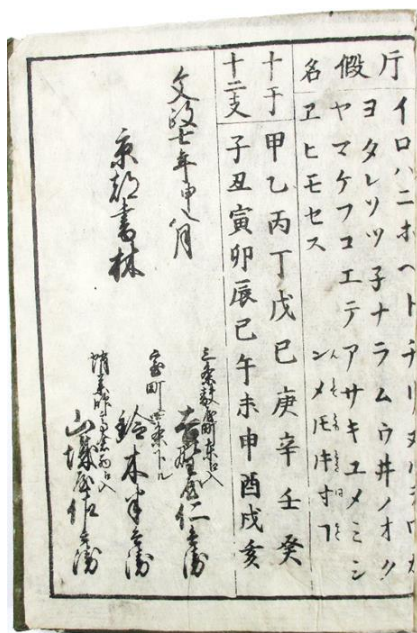 片假名
イロハニホヘトチリヌルヲワカ
ヨタレソツ子ナラムウ井ノオク
ヤマケフコエテアサキユメミシ
ヱヒモセス
十干 甲乙丙丁戊己庚辛壬癸
十二支 子丑寅卯辰巳午未申酉戌亥
文政七年申八月
京都書林
吉野屋仁兵衛
鈴木半兵衛
山城屋佐兵衛